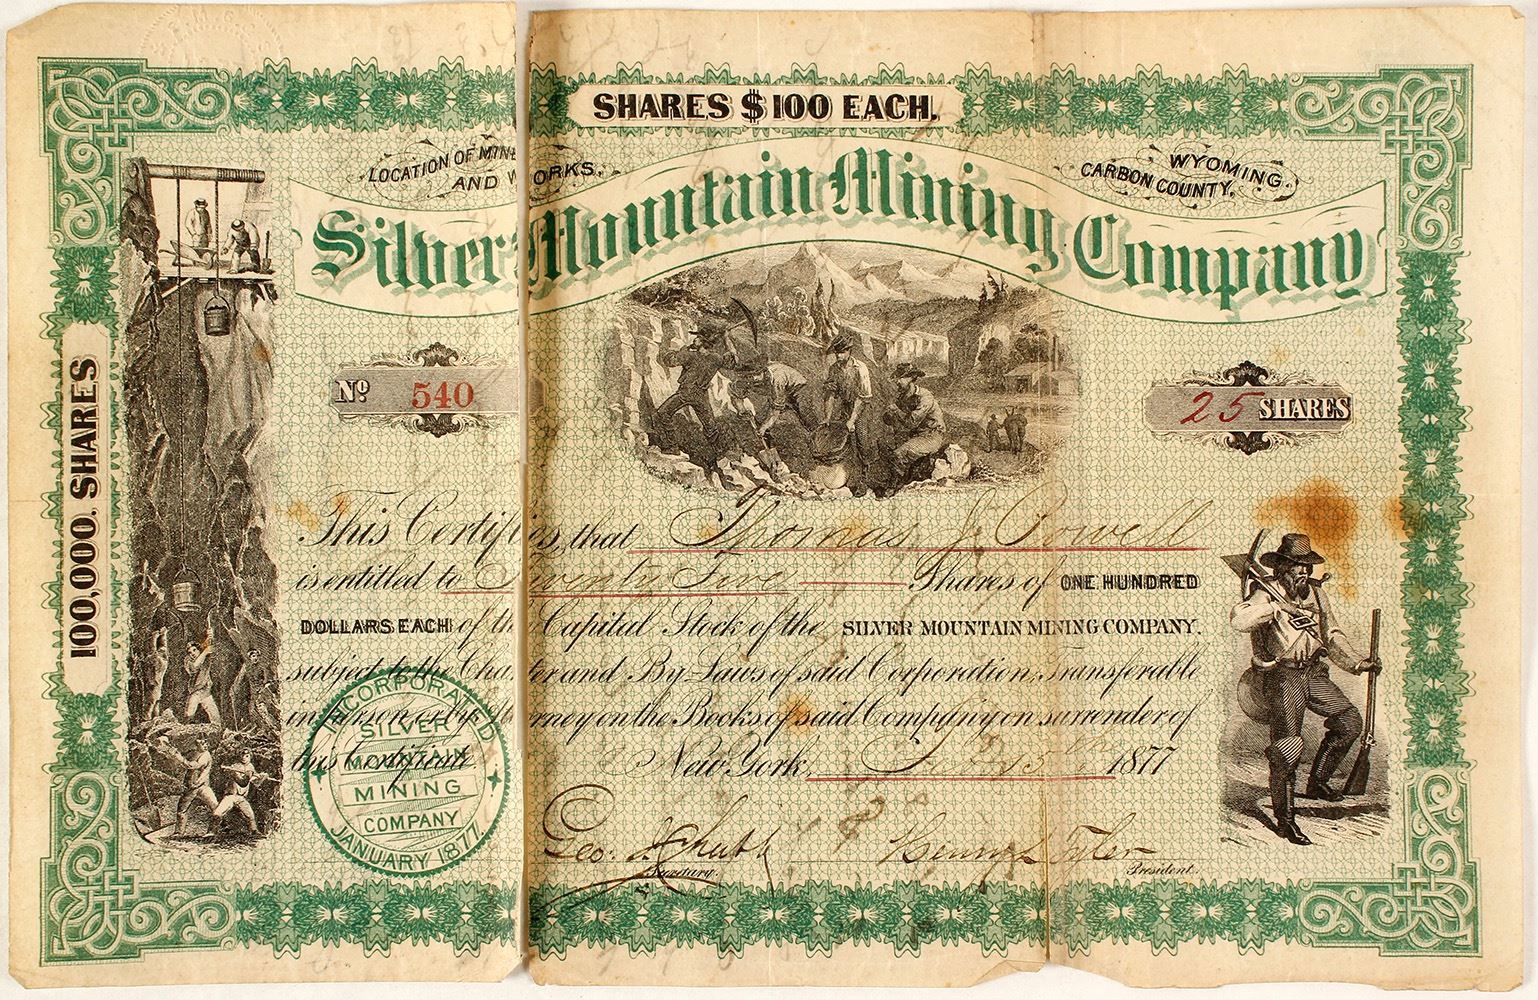 SHARES $100 EACH.
LOCATION OF MINE
AND WORKS.
WYOMING.
CARBON COUNTY.
Silver Mountain Mining Company
100,000. SHARES
Nº 540
25 SHARES
This Certifies, that Thomas J. Powell
is entitled to Twenty Five Shares of ONE HUNDRED
DOLLARS EACH of the Capital Stock of the SILVER MOUNTAIN MINING COMPANY.
subject to the Charter and By-Laws of said Corporation, Transferable
in person or by Attorney on the Books of said Company on surrender of
this Certificate
New York, 1877
INCORPORATED
SILVER
MOUNTAIN
MINING
COMPANY
JANUARY 1877.
Geo. Henry Tyler
Secretary. President.